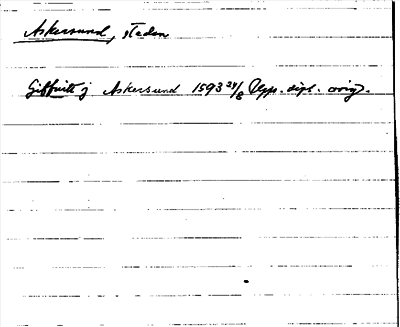 Askersund, staden
Giffuitt j Askersund 1593 24/8 Upps. dipl. orig.